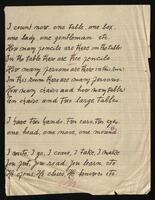 I count now one table, one box,
one lady one gentleman etc.
How many pencils are there on the table
In the table there are five pencils
How many persons are there in this
In this room there are many persons.
How many chairs and how many tables
Ten chairs and Five large tables
I have two hands. Two ears, two eyes,
one head, one nose, one mouth
I write, I go, I come, I take, I make
you put, you read, you learn, etc.
He opens, He closes, He